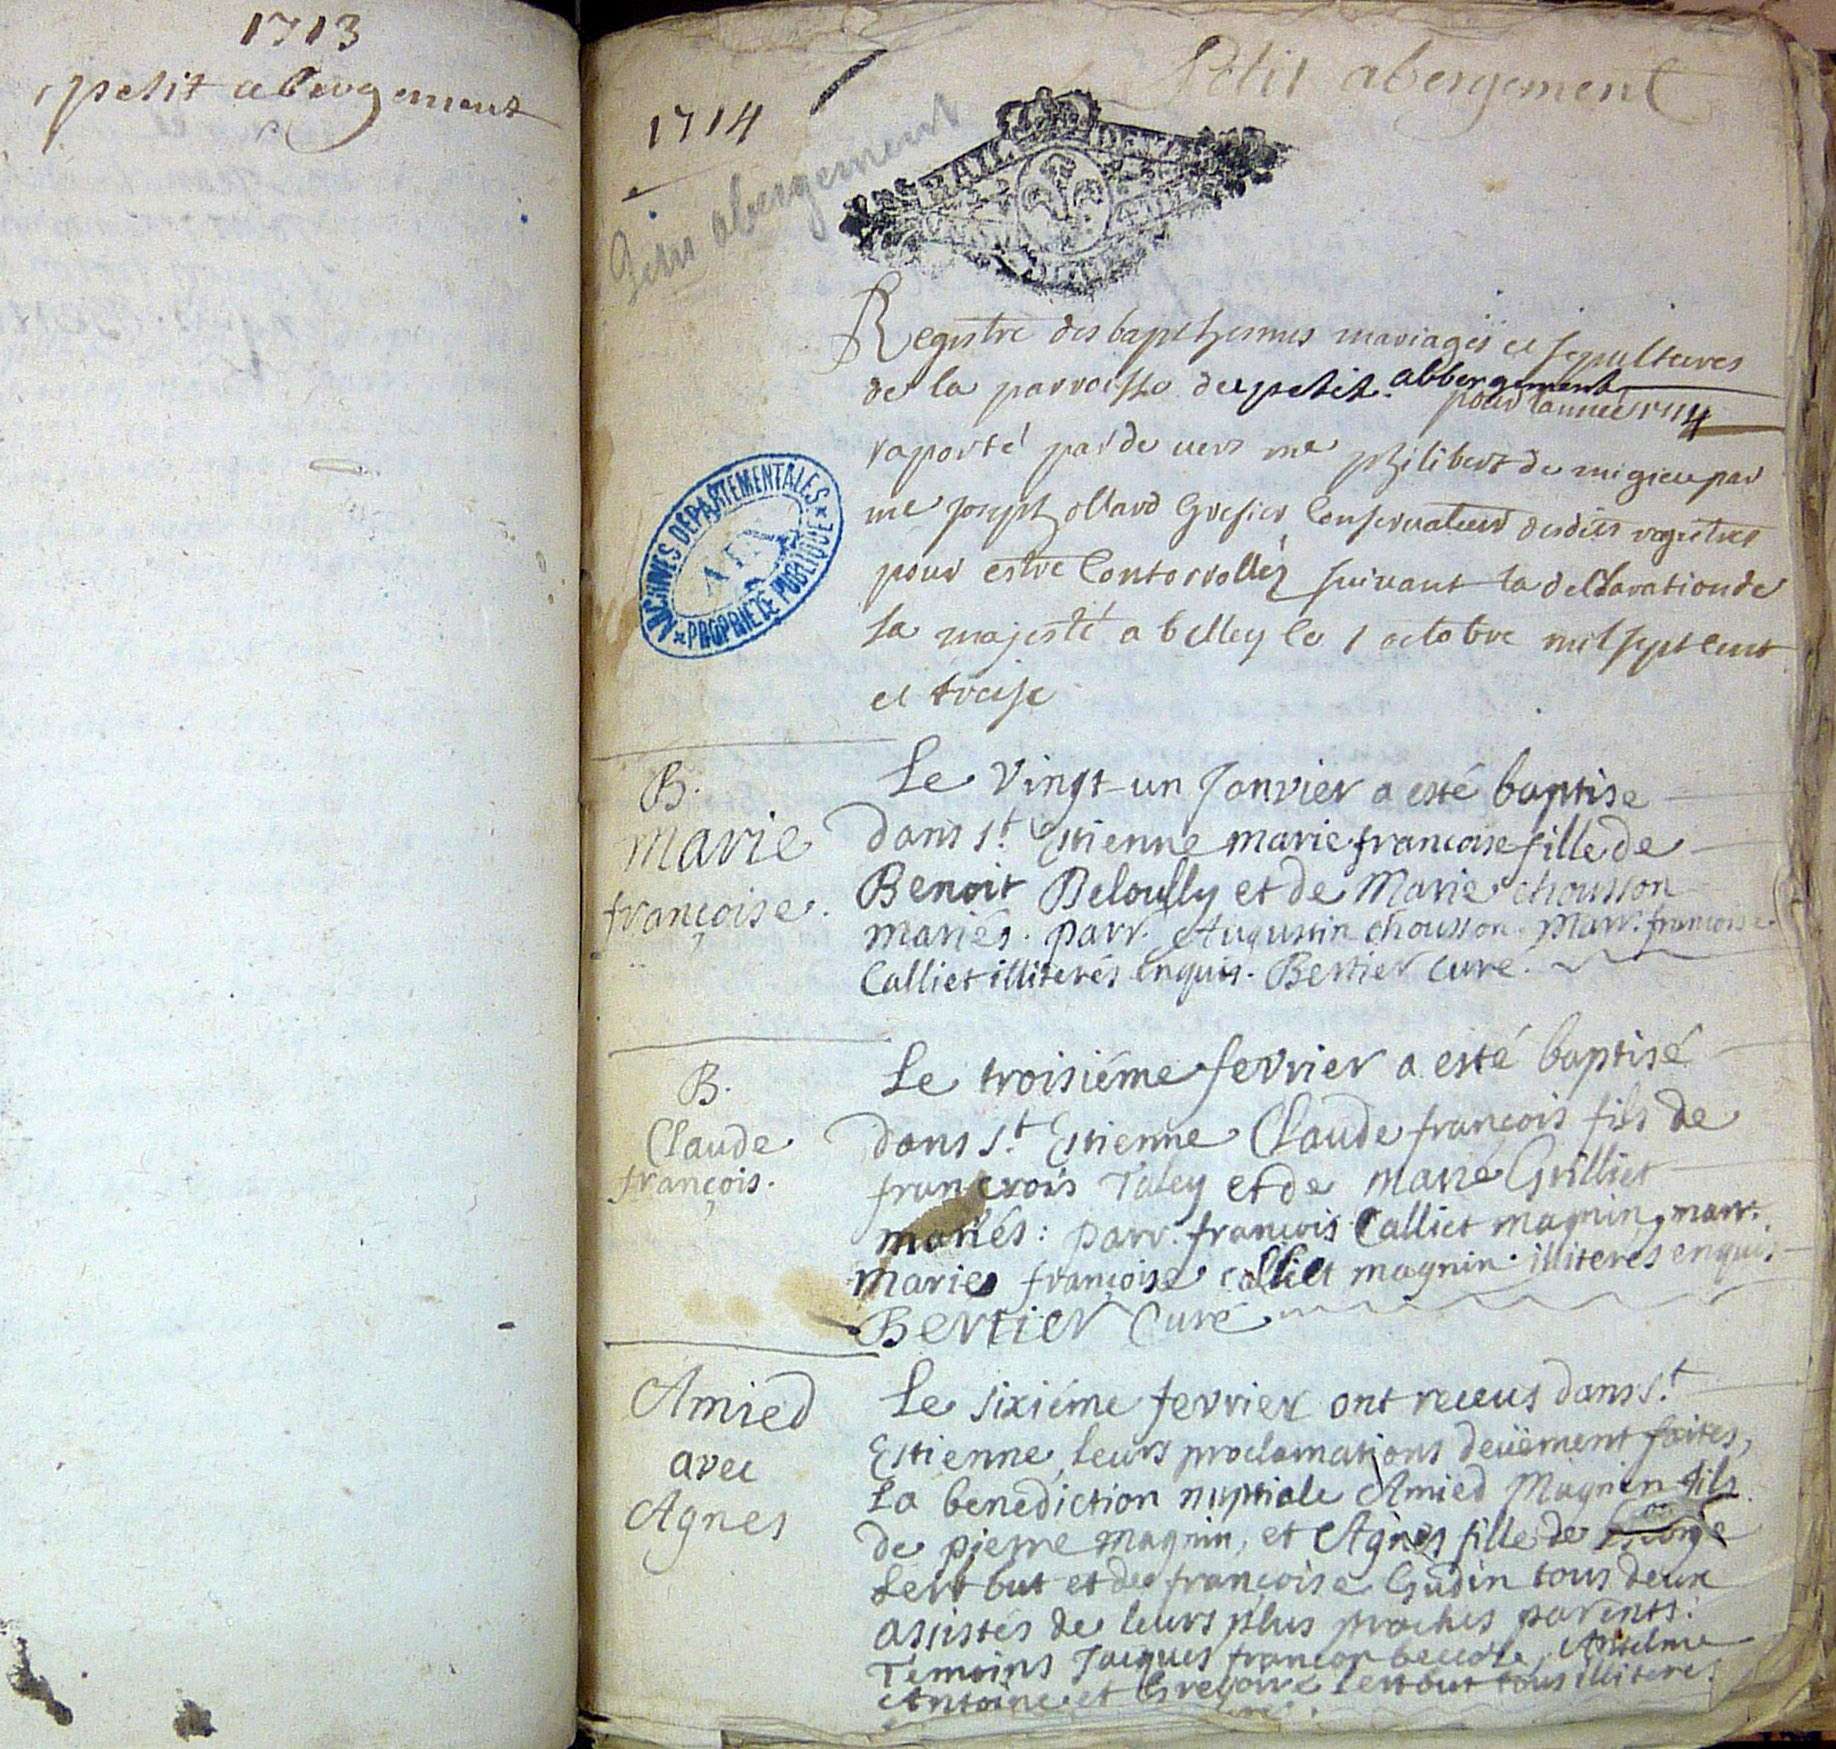 1713
petit abergement
Petit abergement
1714
abergement
ARCHIVES DÉPARTEMENTALES
AIN
PROPRIÉTÉ PUBLIQUE
Registre des bapthesmes mariages et sepultures
de la parroisse du petit abbergement
pour lannee 1714
raporté parde vers me philibert de migieu par
me joseph ollard Grefier Conservateur desdits registres
pour estre Contorrollez suivant la declaration de
sa majesté a belley le 1 octobre mil sept cent
et treise
B.
marie
françoise.
Le vingt-un Janvier a esté baptise
dans st. Estienne marie françoise fille de
Benoit Beloully et de Marie chousson
mariés. parr. Augustin chousson. Marr. françoise
Calliet illiterés enquis. Bertier curé.
B.
Claude
françois.
Le troisiéme fevrier a esté baptisé
dans st. Estienne Claude françois fils de
françois Taley et de marie Grilliet
mariés: parr. françois Calliet magnin, marr.
marie françoise calliet magnin. illiterés enquis.
Bertier Curé
Amied
avec
Agnes
Le sixiéme fevrier ont receus dans st.
Estienne, leurs proclamations deüement faites,
La benediction nuptiale Amied Magnin fils
de pierre magnin, et Agnes fille de
Lertbut et de françoise Gudin tous deux
assistés de leurs plus proches parents.
Temoins Jacques Anselme
Antoine et Gregoire Lertbut tous illiteres.